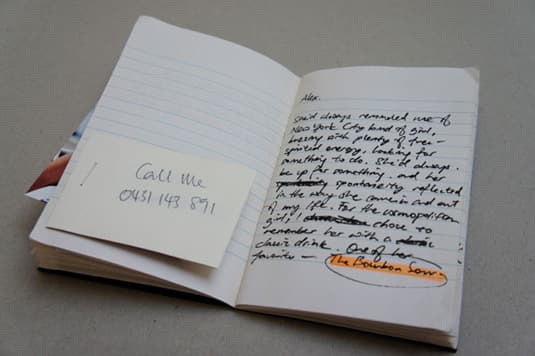 Call Me
0431 143 891
Alex.
She'd always reminded me of
New York City kind of girl,
buzzing with plenty of free-
spirited energy, looking for
something to do. She'd always
be up for something, and her
spontaneity reflected
in the way she came in and out
of my life. For the cosmopolitan
girl, I chose to
remember her with a
classic drink. One of her
favorites -
The Bourbon Sour.